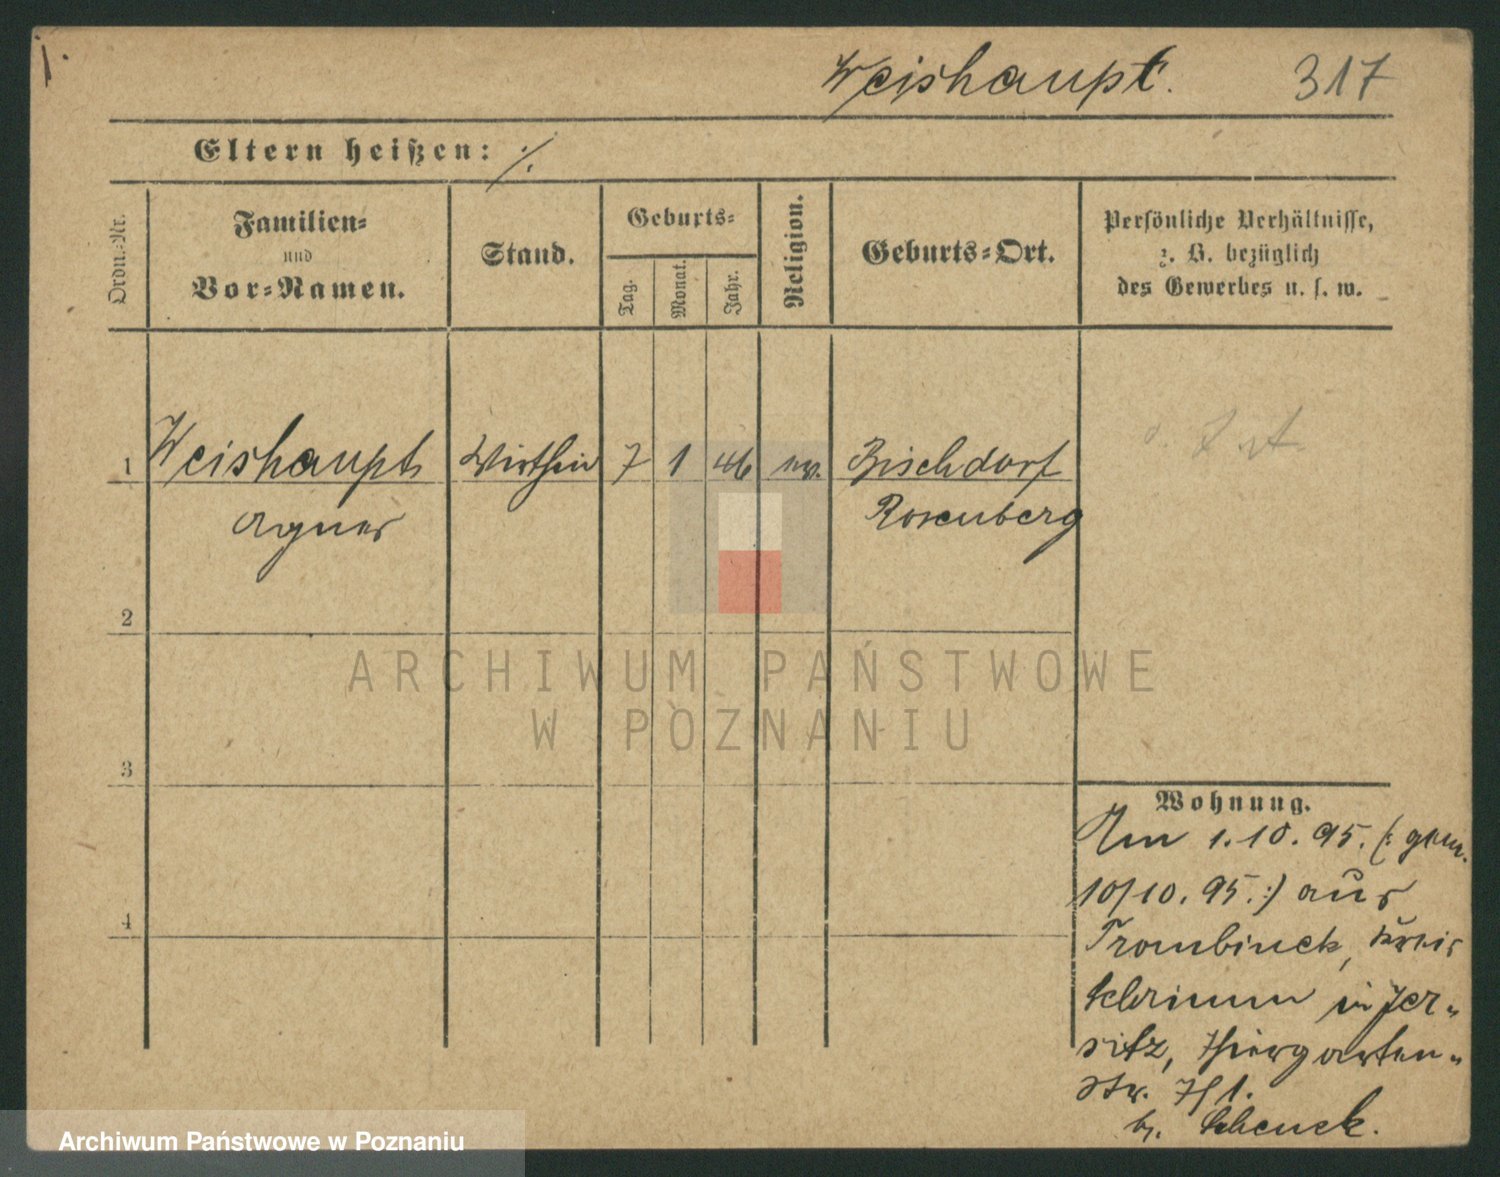 1.
Weishaupt. 317
Eltern heißen: ./.
Ordn.-Nr.
Familien-
und
Vor-Namen.
Stand.
Geburts-
Tag.
Monat.
Jahr.
Religion.
Geburts-Ort.
Persönliche Verhältnisse,
z. B. bezüglich
des Gewerbes u. s. w.
1 Weishaupt Wirthin 7 1 46 ev. Bischdorf
Agnes Rosenberg
2
3
4
Wohnung.
Am 1.10.95. (: gem.
10/10.95.:) aus
Trombinek, Kreis
Schrimm in Jer-
sitz, Thiergarten-
str. 7/1.
b. Schenck.
ARCHIWUM PAŃSTWOWE
W POZNANIU
Archiwum Państwowe w Poznaniu